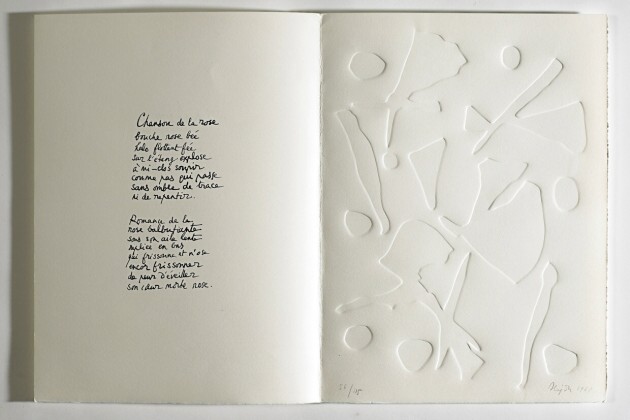 Chanson de la rose
bouche rose bée
halo flottant fée
sur l'étang explose
à mi-clos soupir
comme pas qui passe
sans ombre de trace
ni de repentir.
Romance de la
rose balbutiante
sous son aile lente
en
qui frissonne et n'ose
encor frissonner
de peur d'éveiller
son cœur morte rose.